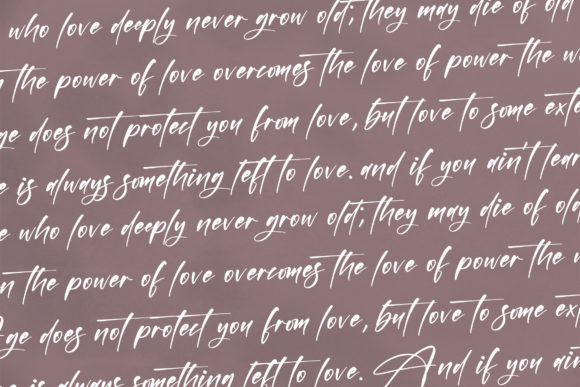 who love deeply never grow old; they may die of old
the power of love overcomes the love of power the
does not protect you from love, but love to some
is always something left to love. and if you ain't
who love deeply never grow old; they may die of old
the power of love overcomes the love of power the
does not protect you from love, but love to some
is always something left to love. And if you